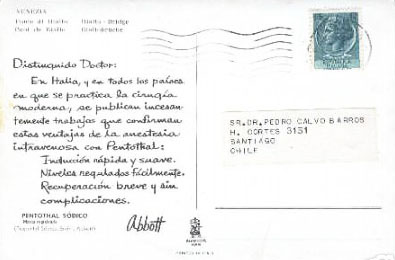 VENEZIA
Ponte di Rialto Rialto-Bridge
Pont de Rialto Rialtobrücke
Distinguido Doctor:
En Italia, y en todos los países
en que se practica la cirugía
moderna, se publican incesan-
temente trabajos que confirman
estas ventajas de la anestesia
intravenosa con Pentothal:
Inducción rápida y suave.
Niveles regulados fácilmente.
Recuperación breve y sin
complicaciones.
PENTOTHAL SÓDICO
Abbott
SR.DR.PEDRO CALVO BARROS
H. CORTES 3151
SANTIAGO
CHILE